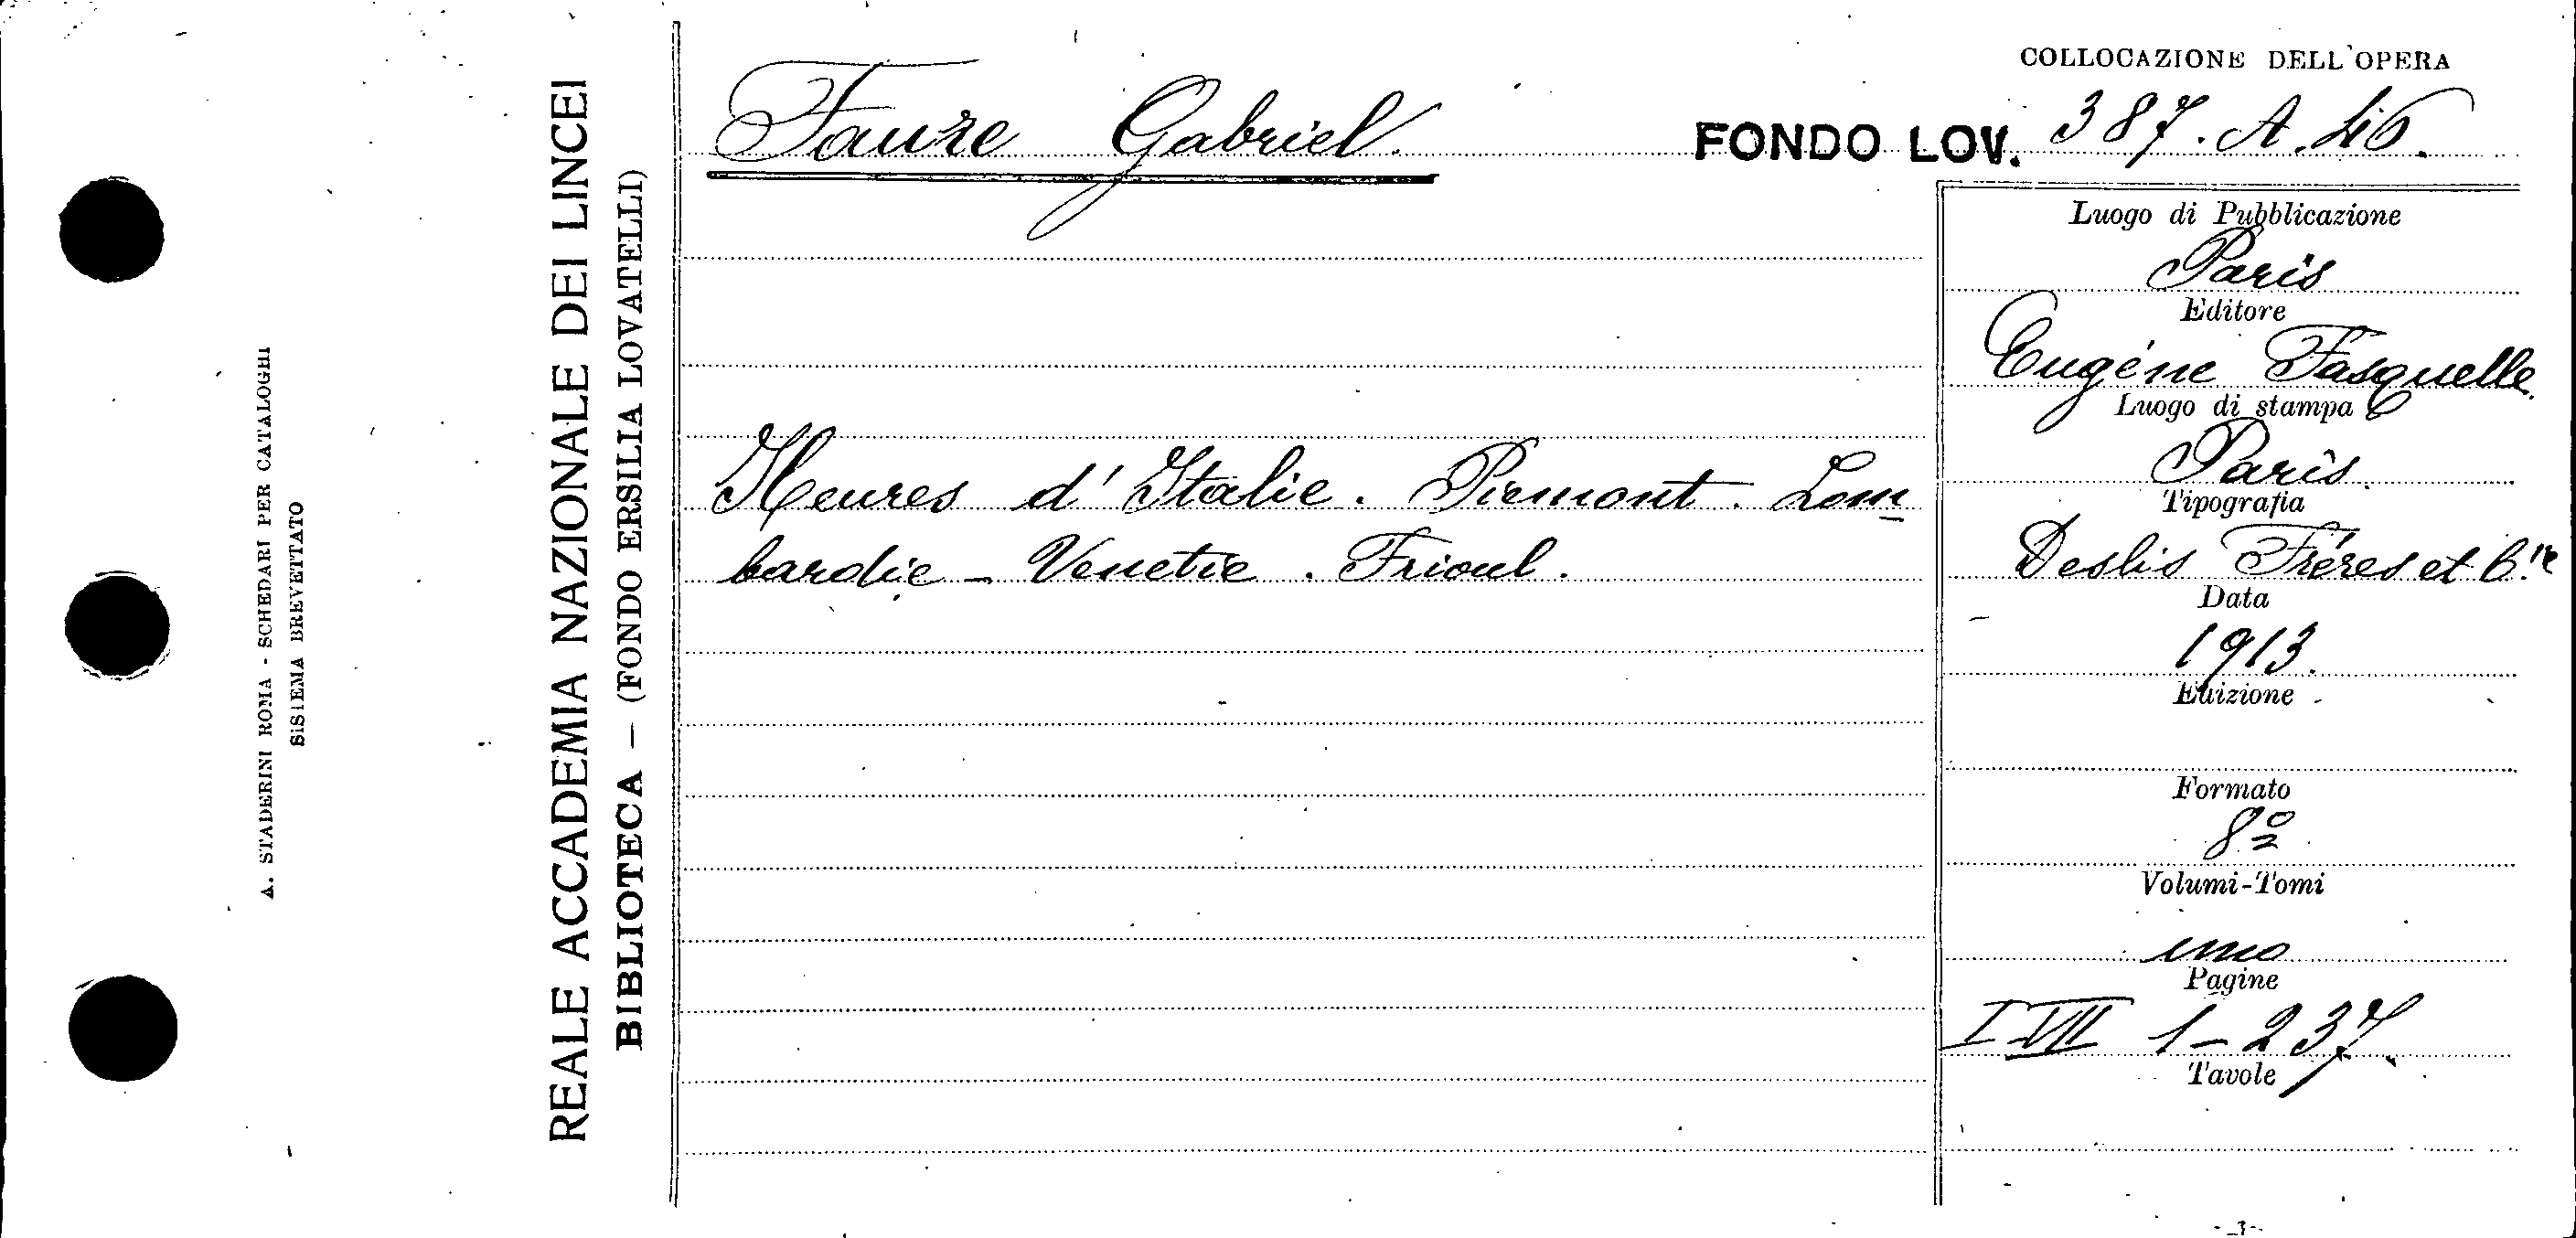 A. STADERINI ROMA - SCHEDARI PER CATALOGHI
SISTEMA BREVETTATO
REALE ACCADEMIA NAZIONALE DEI LINCEI
BIBLIOTECA — (FONDO ERSILIA LOVATELLI)
Faure Gabriel.
Heures d'Italie. Piemont. Lom
bardie - Venetie. Frioul.
COLLOCAZIONE DELL'OPERA
FONDO LOV. 387. A. 46.
Luogo di Pubblicazione
Paris
Editore
Eugéne Fasquelle.
Luogo di stampa
Paris.
Tipografia
Deslis Fréres et C.ie
Data
1913.
Edizione
Formato
8º
Volumi-Tomi
uno
Pagine
I VII 1-237.
Tavole